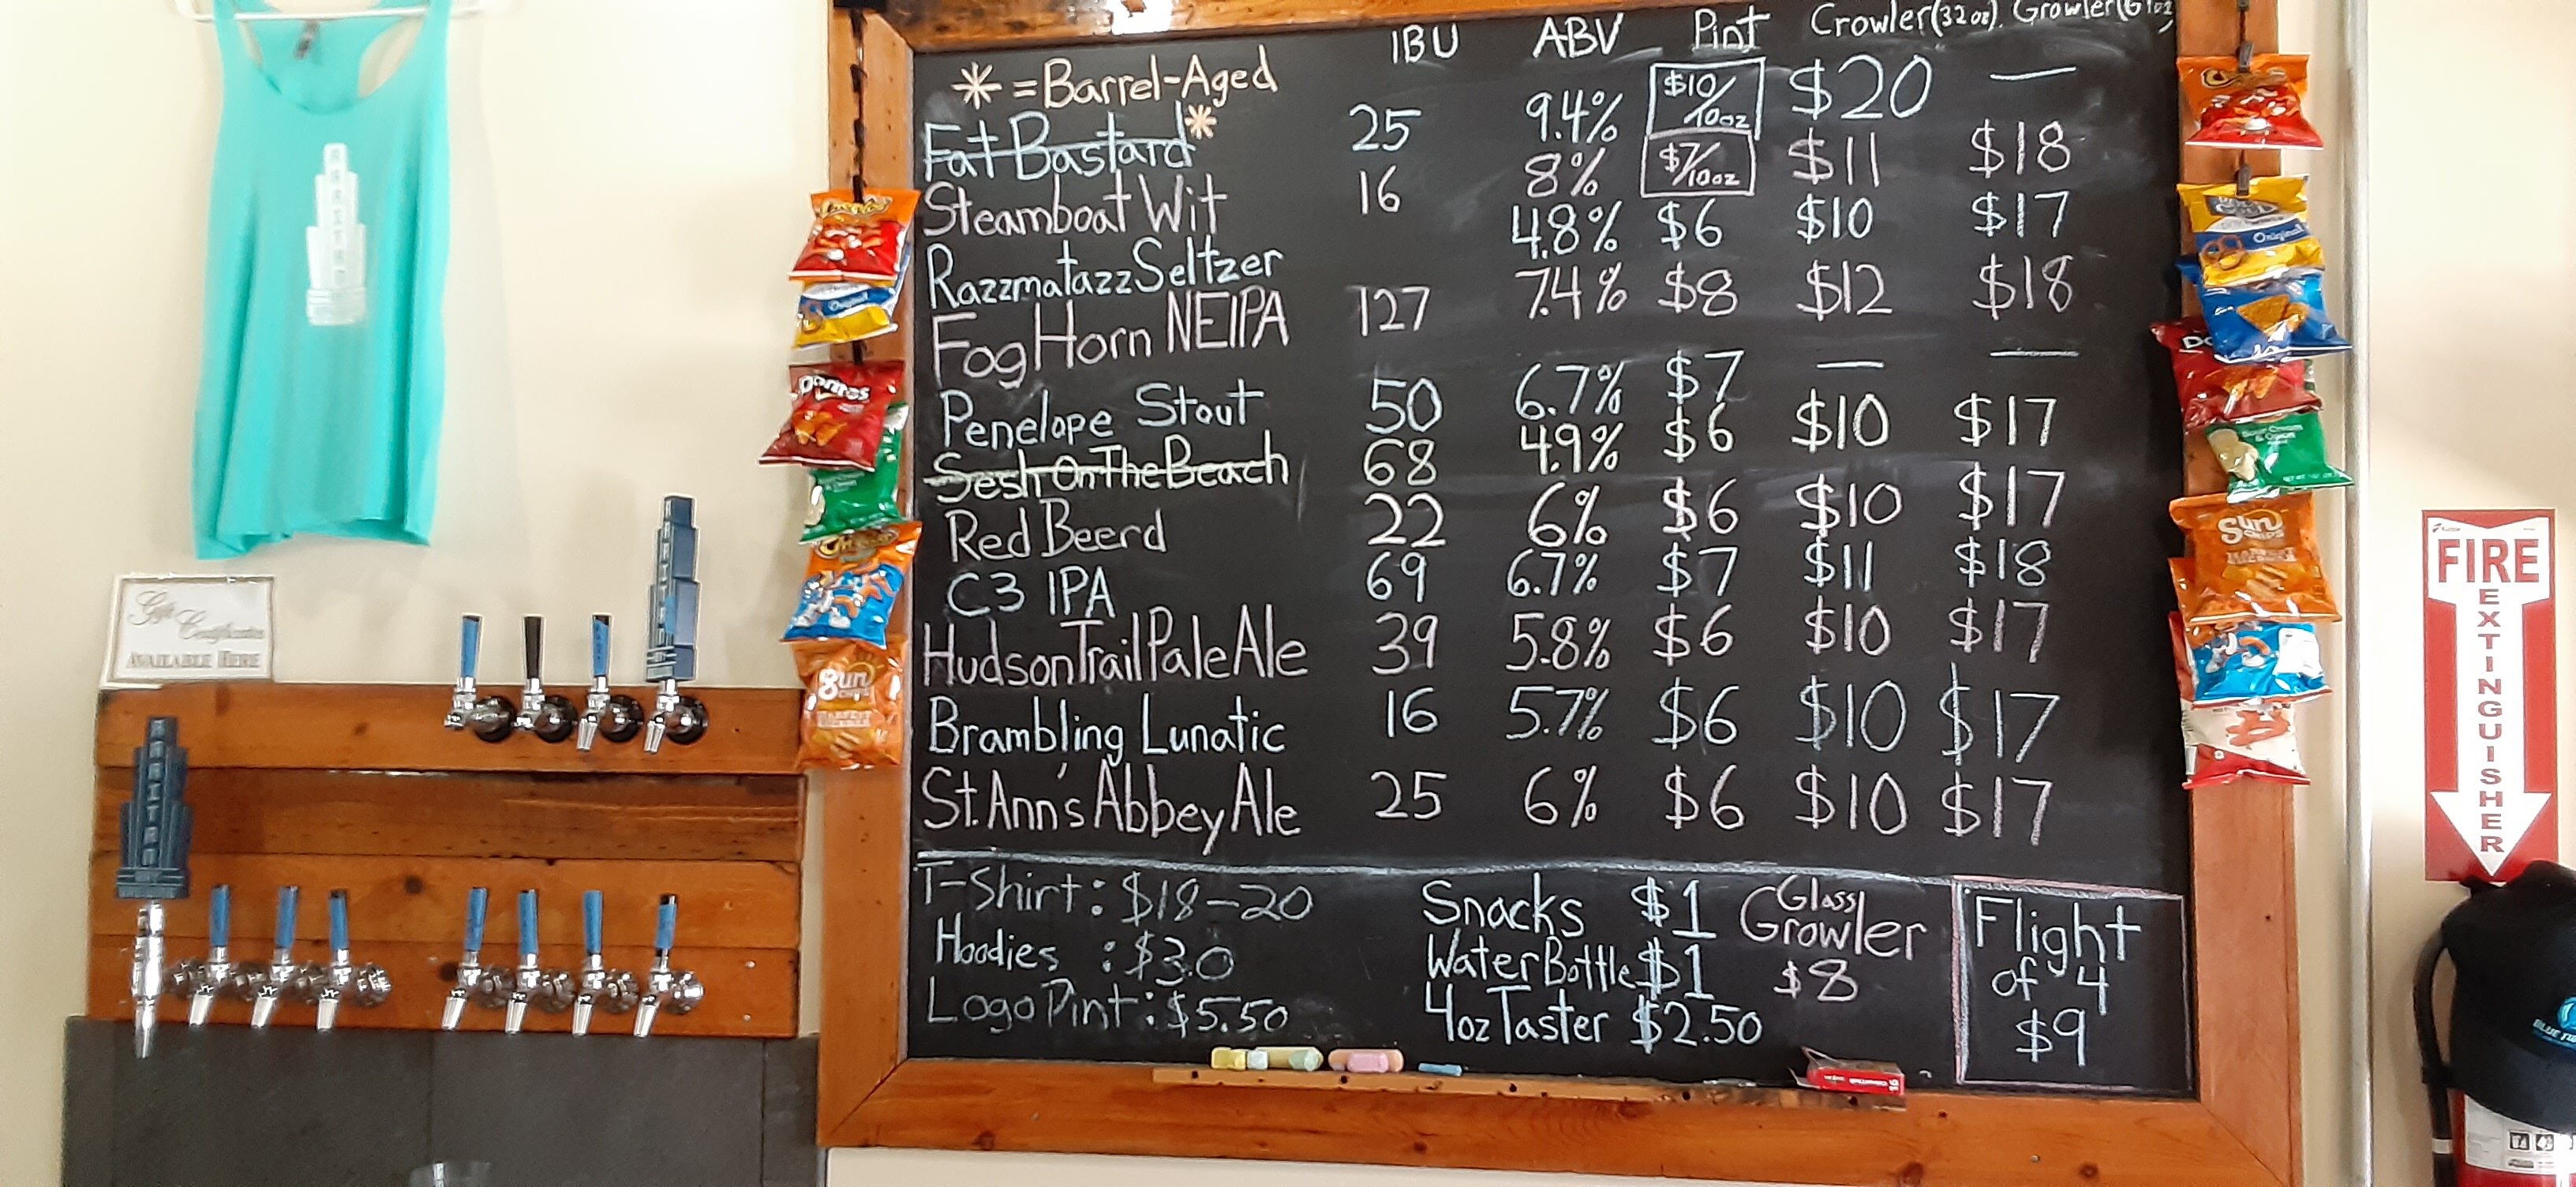 IBU ABV Pint Crowler(32oz). Growler(61oz)
* = Barrel-Aged
Fat Bastard* 25 9.4% $10/10oz $20 —
Steamboat Wit 16 8% $7/10oz $11 $18
Razzmatazz Seltzer 4.8% $6 $10 $17
Fog Horn NEIPA 127 7.4% $8 $12 $18
Penelope Stout 50 6.7% $7 — —
Sesh On The Beach 68 4.9% $6 $10 $17
Red Beerd 22 6% $6 $10 $17
C3 IPA 69 6.7% $7 $11 $18
Hudson Trail Pale Ale 39 5.8% $6 $10 $17
Brambling Lunatic 16 5.7% $6 $10 $17
St. Ann's Abbey Ale 25 6% $6 $10 $17
T-Shirt: $18-20
Hoodies : $30
Logo Pint: $5.50
Snacks $1
Water Bottle $1
4oz Taster $2.50
Glass
Growler
$8
Flight
of 4
$9
Gift
Certificates
AVAILABLE HERE
Doritos
Original
Sun
CHIPS
Original
Sour Cream
& Onion
Sun
CHIPS
HARVEST
FIRE
EXTINGUISHER